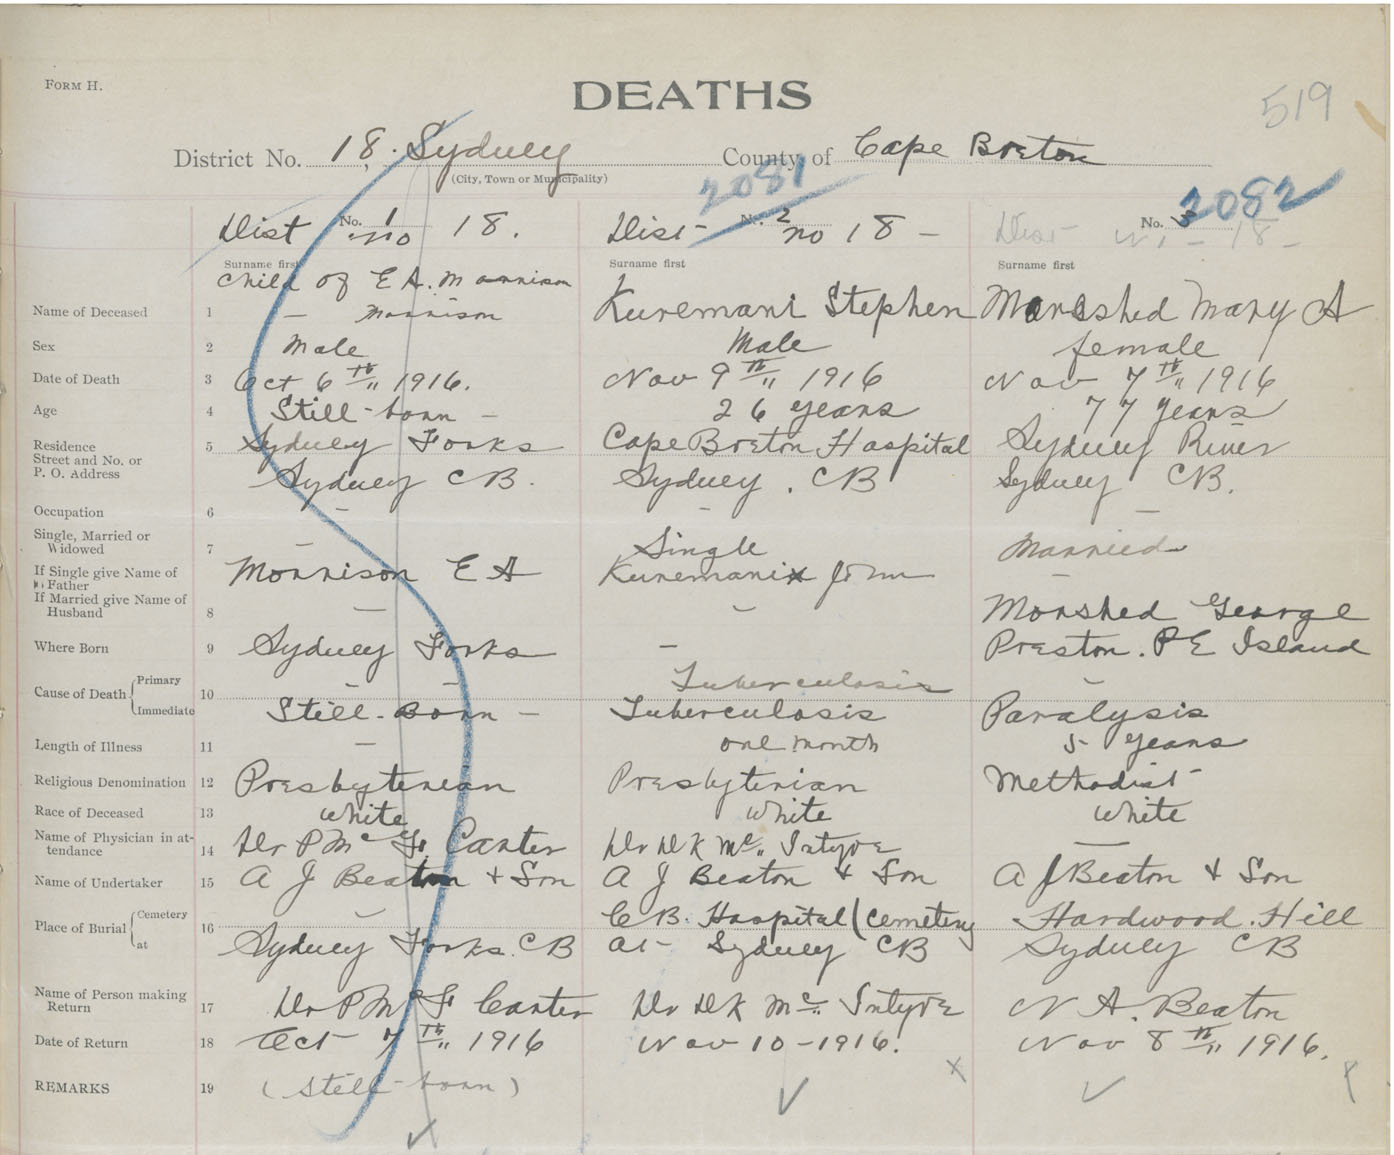 FORM H.
DEATHS
519
District No. 18. Sydney County of Cape Breton
(City, Town or Municipality)
2081
2082
No. 1
Dist no 18.
No. 2
Dist no 18 -
No. 3
Dist - 18 -
Surname first
Surname first
Surname first
child of E A. Morrison
Name of Deceased 1 - Morrison Kuremani Stephen Marished Mary A
Sex 2 Male Male female
Date of Death 3 Oct 6th 1916. Nov 9th 1916 Nov 7th 1916
Age 4 Still-born - 26 years 77 years
Residence
Street and No. or
P. O. Address
5 Sydney Forks Cape Breton Hospital Sydney River
Sydney CB. Sydney. CB Sydney CB.
Occupation 6 - - -
Single, Married or
Widowed
7 - Single Married
If Single give Name of
Father
Morrison E A Kuremanix John -
If Married give Name of
Husband
8 - - Morshed George
Where Born 9 Sydney Forks - Preston. P E Island
Cause of Death Primary - - Tuberculosis -
10
Immediate Still-Born - Tuberculosis Paralysis
Length of Illness 11 - one month 5 years
Religious Denomination 12 Presbyterian Presbyterian Methodist
Race of Deceased 13 white white white
Name of Physician in at-
tendance
14 Dr P Mc F Carter Dr D K Mc Intyre -
Name of Undertaker 15 A J Beaton + Son A J Beaton + Son A J Beaton + Son
Place of Burial Cemetery - C B. Hospital (cemetery Hardwood. Hill
16
at Sydney Forks. CB at - Sydney CB Sydney CB
Name of Person making
Return
17 Dr P Mc F Carter Dr D K Mc Intyre N A. Beaton
Date of Return 18 Oct 7th 1916 Nov 10-1916. Nov 8th 1916.
REMARKS 19 (Still-born)